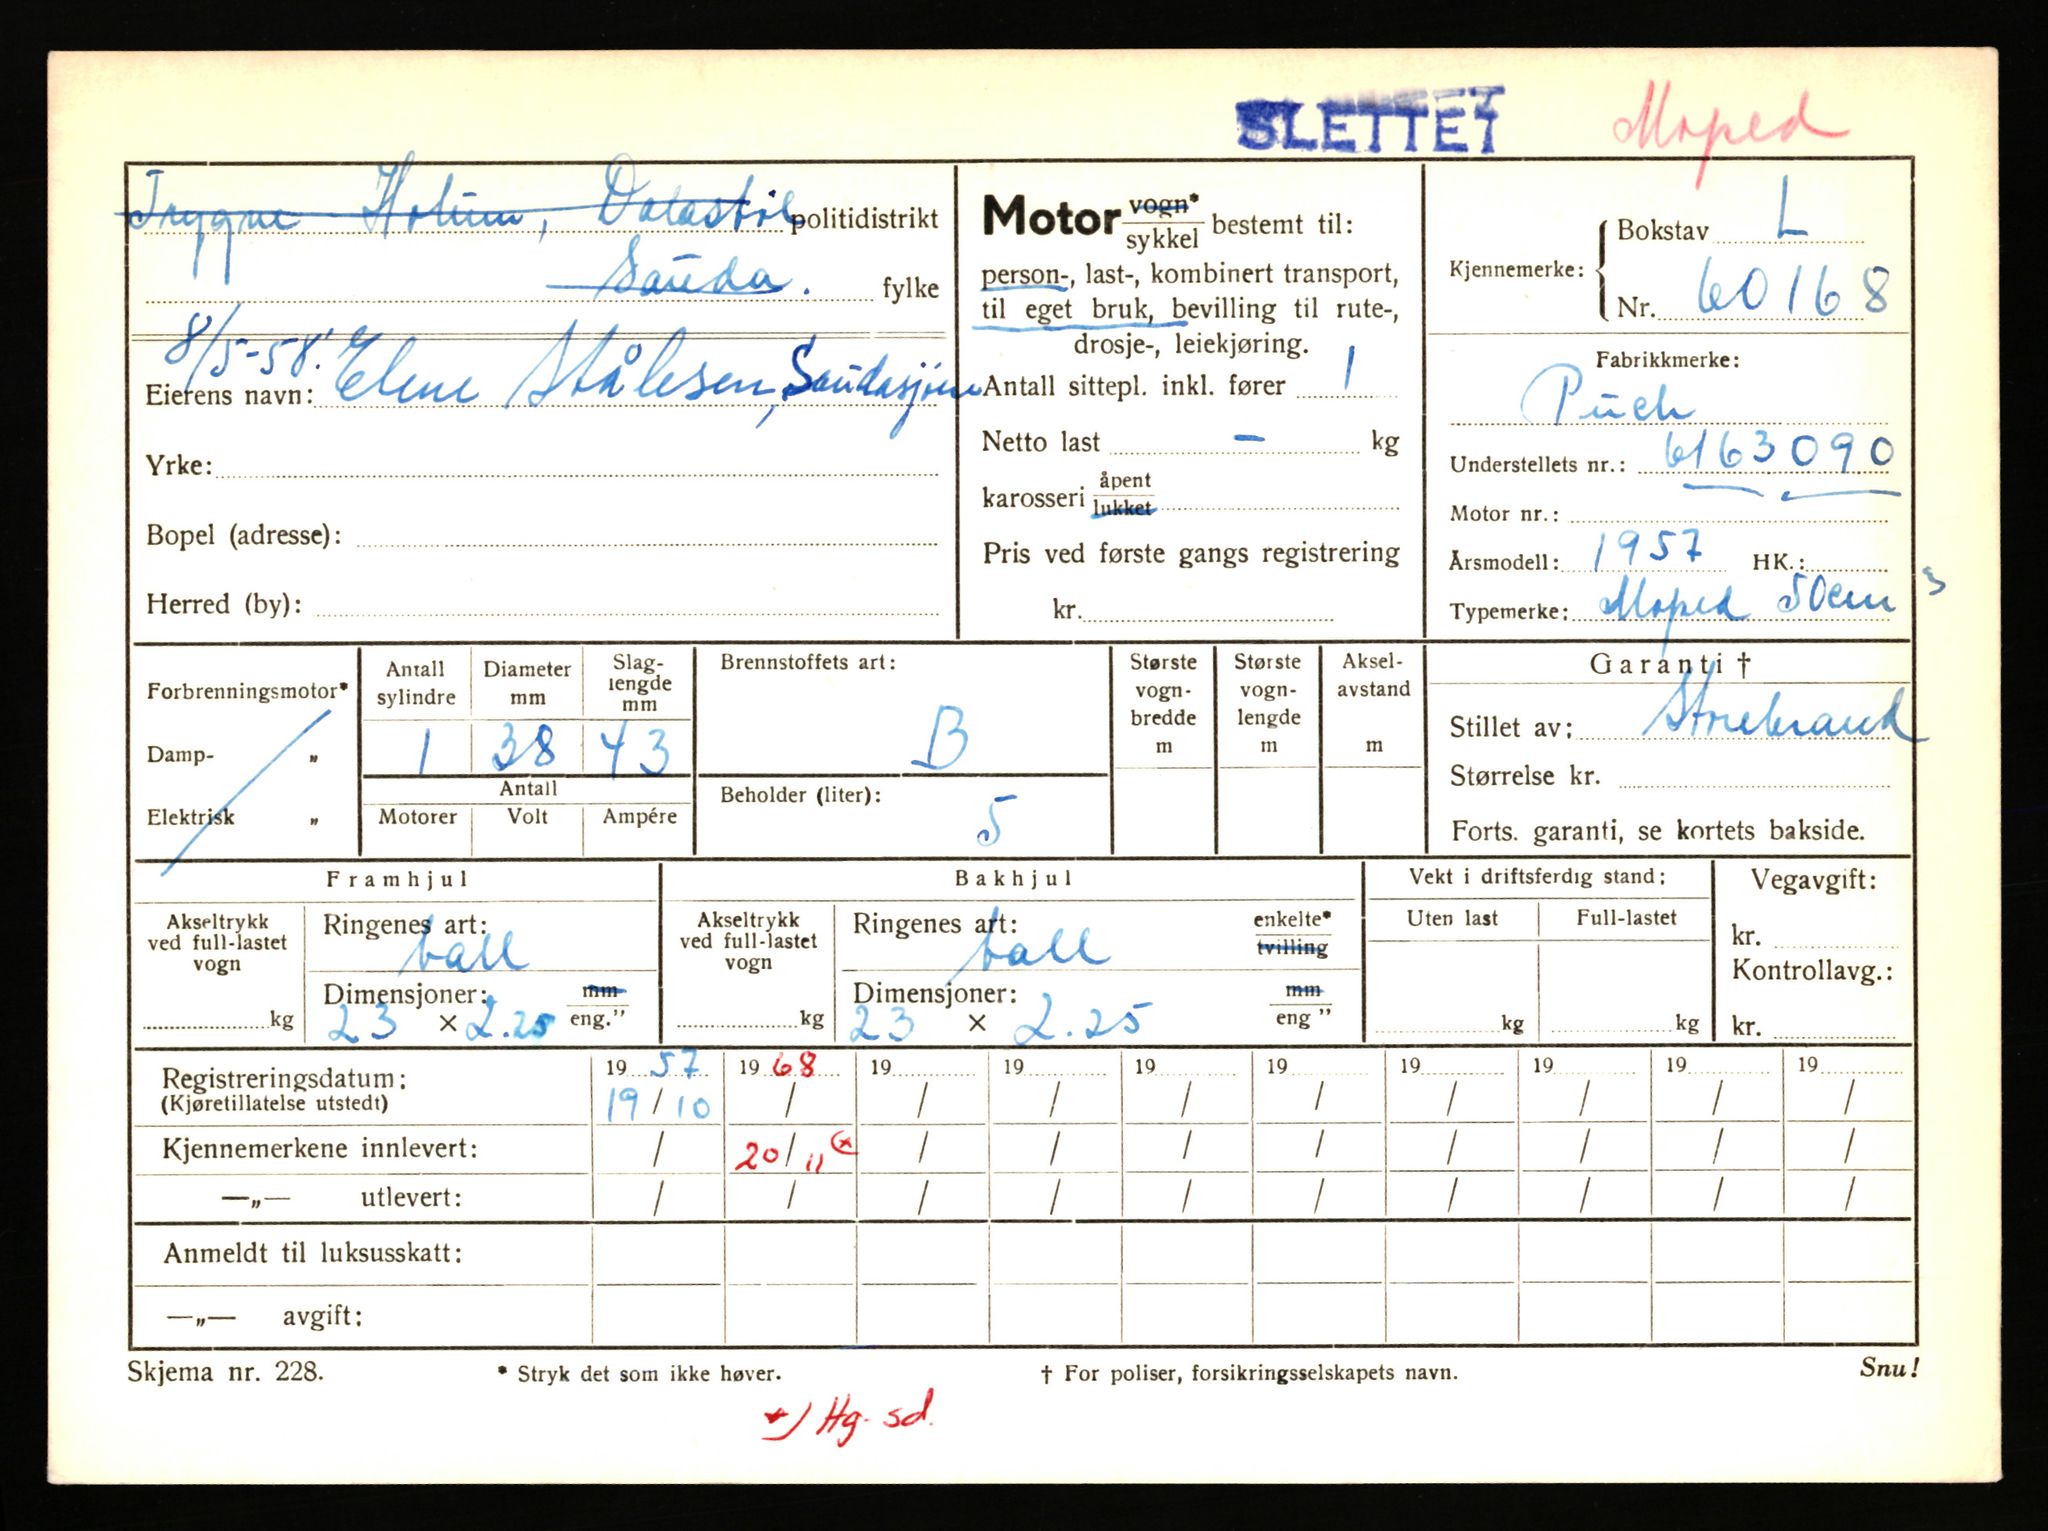 SLETTET Moped
Trygve Holum, Dalastøl politidistrikt
Sauda. fylke
8/5-58.
Eierens navn: Elene Stålesen, Saudasjøen
Yrke:
Bopel (adresse):
Herred (by):
Motor vogn* / sykkel bestemt til:
person-, last-, kombinert transport,
til eget bruk, bevilling til rute-,
drosje-, leiekjøring.
Antall sittepl. inkl. fører 1
Netto last – kg
karosseri åpent / lukket
Pris ved første gangs registrering
kr.
Kjennemerke: Bokstav L
Nr. 60168
Fabrikkmerke:
Puch
Understellets nr.: 6163090
Motor nr.:
Årsmodell: 1957 HK.:
Typemerke: Moped 50cm³
Forbrenningsmotor*
Damp- „
Elektrisk „
Antall sylindre Diameter mm Slag-lengde mm
1 38 43
Antall
Motorer Volt Ampére
Brennstoffets art:
B
Beholder (liter):
5
Største vogn-bredde m
Største vogn-lengde m
Aksel-avstand m
Garanti †
Stillet av: Storebrand
Størrelse kr.
Forts. garanti, se kortets bakside.
Framhjul
Akseltrykk ved full-lastet vogn
kg
Ringenes art:
ball
Dimensjoner: mm / eng.”
23 × 2.25
Bakhjul
Akseltrykk ved full-lastet vogn
kg
Ringenes art: enkelte* / tvilling
ball
Dimensjoner: mm / eng ”
23 × 2.25
Vekt i driftsferdig stand:
Uten last Full-lastet
kg kg
Vegavgift:
kr.
Kontrollavg.:
kr.
19 57 19 68 19 19 19 19 19 19 19 19
Registreringsdatum:
(Kjøretillatelse utstedt) 19/10 / / / / / / / / /
Kjennemerkene innlevert: / 20/11 * / / / / / / / /
—„— utlevert: / / / / / / / / / /
Anmeldt til luksusskatt:
—„— avgift:
Skjema nr. 228. * Stryk det som ikke høver. † For poliser, forsikringsselskapets navn. Snu!
*) Hg. sd.